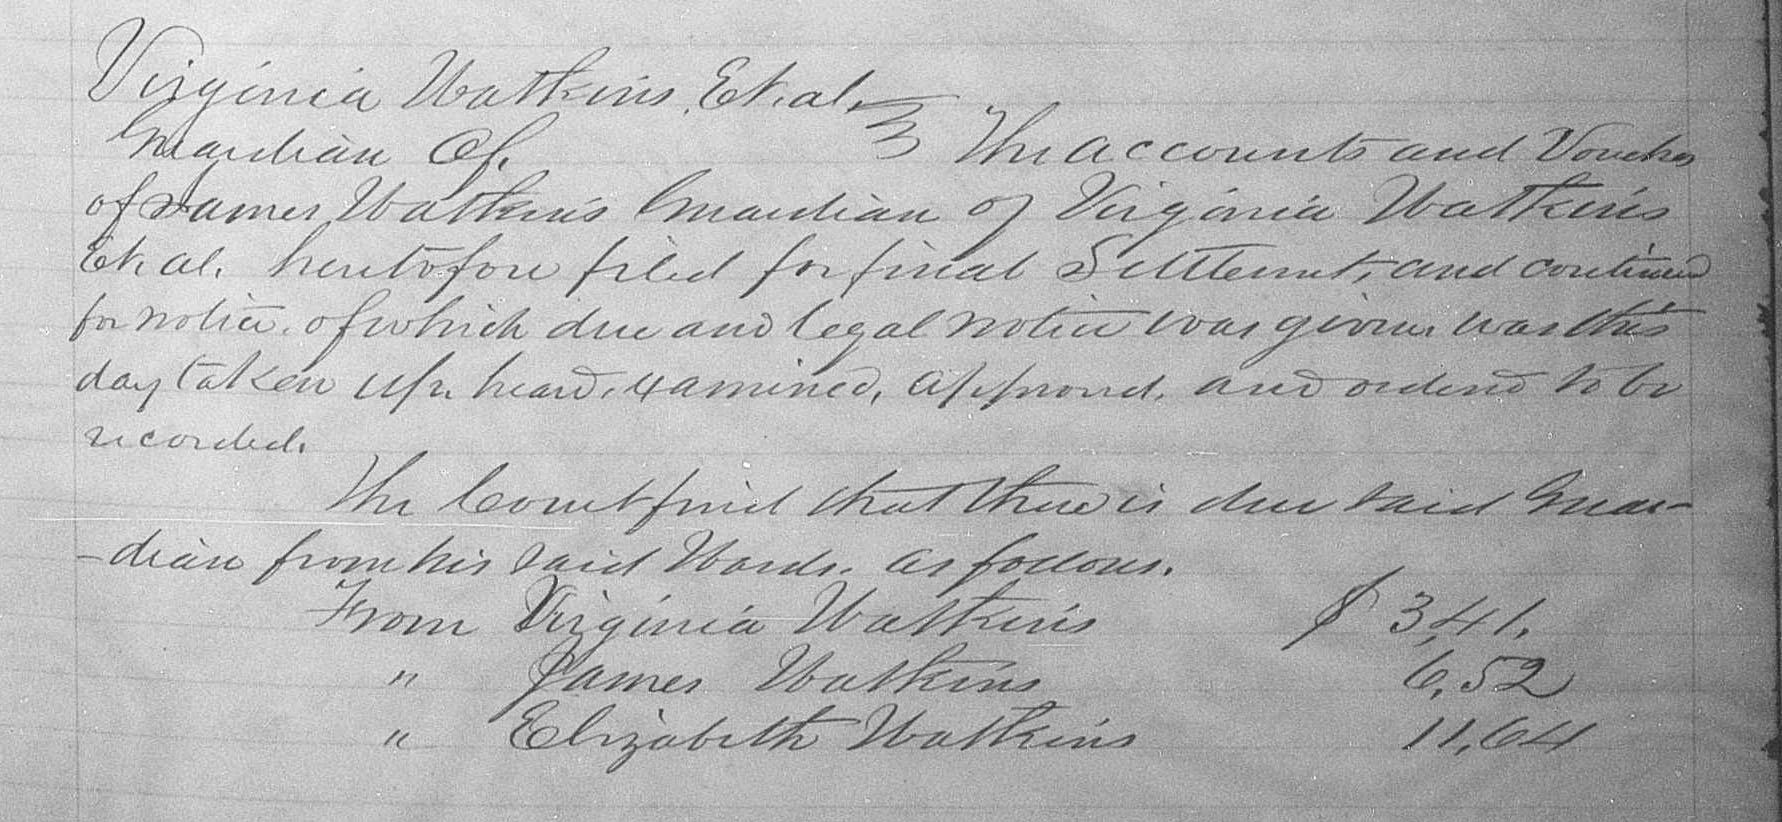 Virginia Watkins, Et. al.
Guardian Of. } The accounts and Vouchers
of James Watkins Guardian of Virginia Watkins
Et. al. heretofore filed for final Settlement, and continued
for notice. of which due and legal notice was given. was this
day taken up. heard. examined, approved. and ordered to be
recorded.
The Court find that there is due said Guar-
-dian from his said Wards. as follows.
From Virginia Watkins $ 3,41.
" James Watkins 6,52
" Elizabeth Watkins 11,64